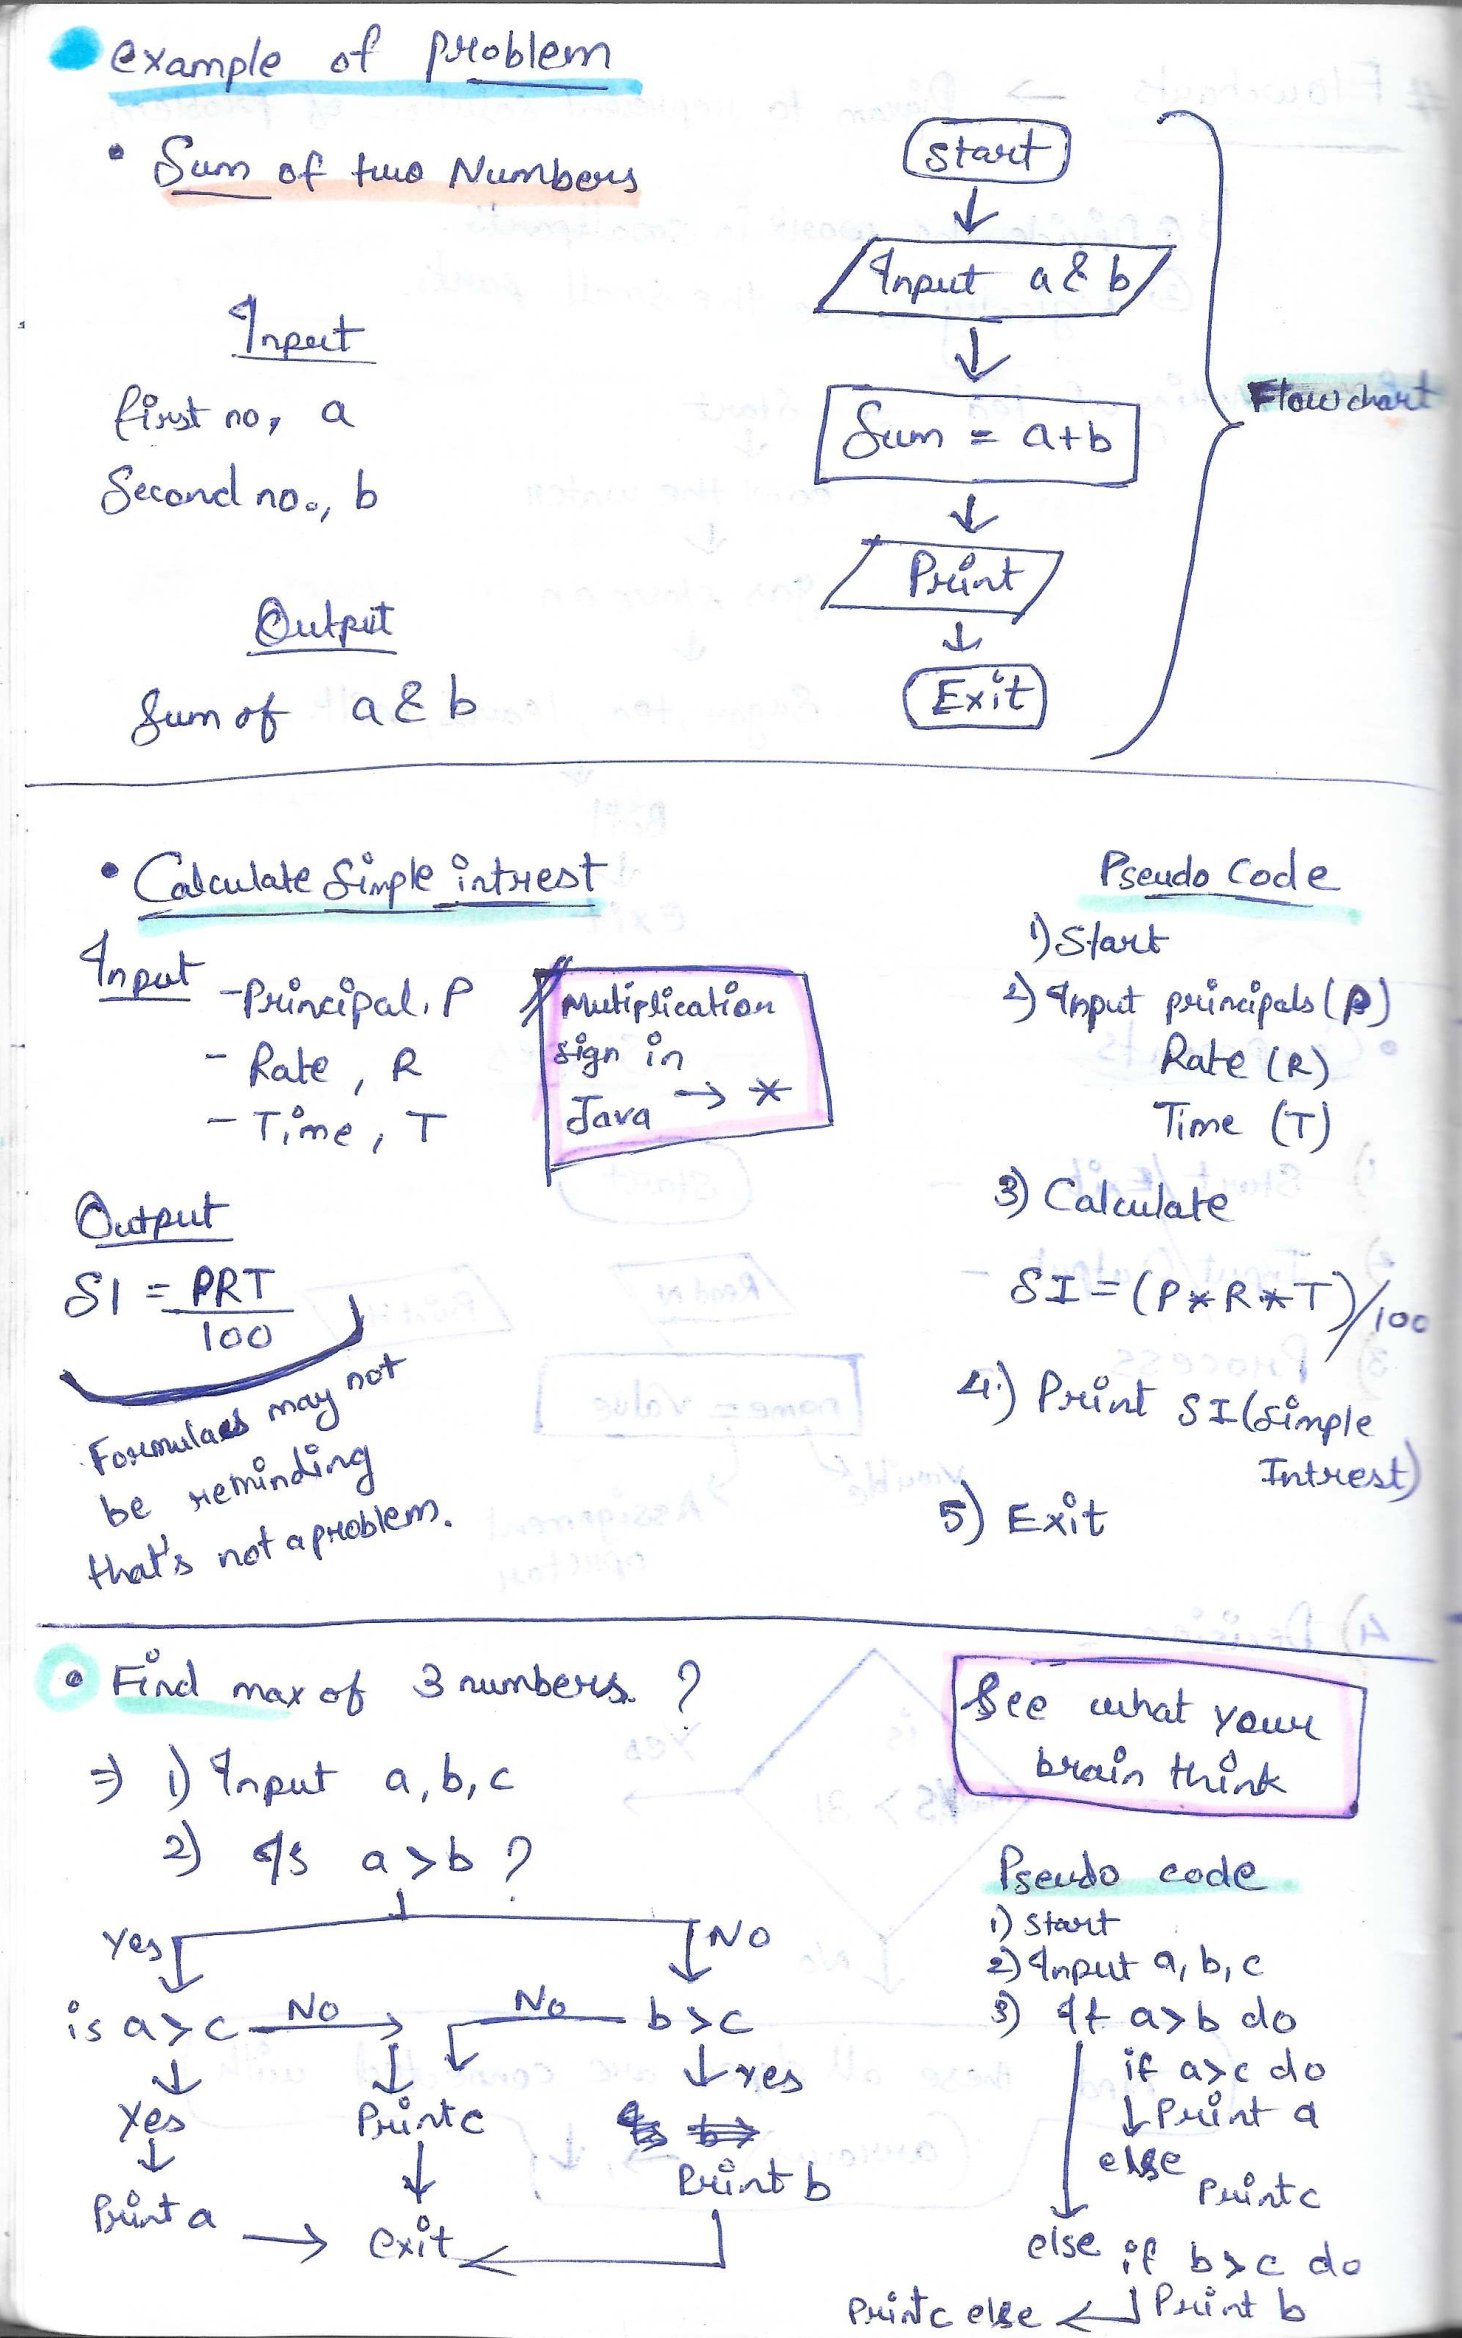 example of problem
• Sum of two Numbers
Input
first no, a
Second no., b
Output
Sum of a & b
Start
Input a & b
Sum = a+b
Print
Exit
Flowchart
• Calculate Simple intrest
Input
- Principal, P
- Rate, R
- Time, T
Multiplication
sign in
Java → *
Output
SI = PRT
100
Formulaes may not
be reminding
that's not a problem.
Pseudo Code
1) Start
2) Input principals (P)
Rate (R)
Time (T)
3) Calculate
SI = (P*R*T)/100
4.) Print SI (Simple
Intrest)
5) Exit
• Find max of 3 numbers. ?
⇒ 1) Input a, b, c
2) Is a > b ?
Yes
NO
is a > c
NO
No
b > c
Yes
Print c
Yes
Print a
Print b
→ exit
See what your
brain think
Pseudo code
1) Start
2) Input a, b, c
3) If a > b do
if a > c do
Print a
else
Print c
else if b > c do
Print b
Print c else